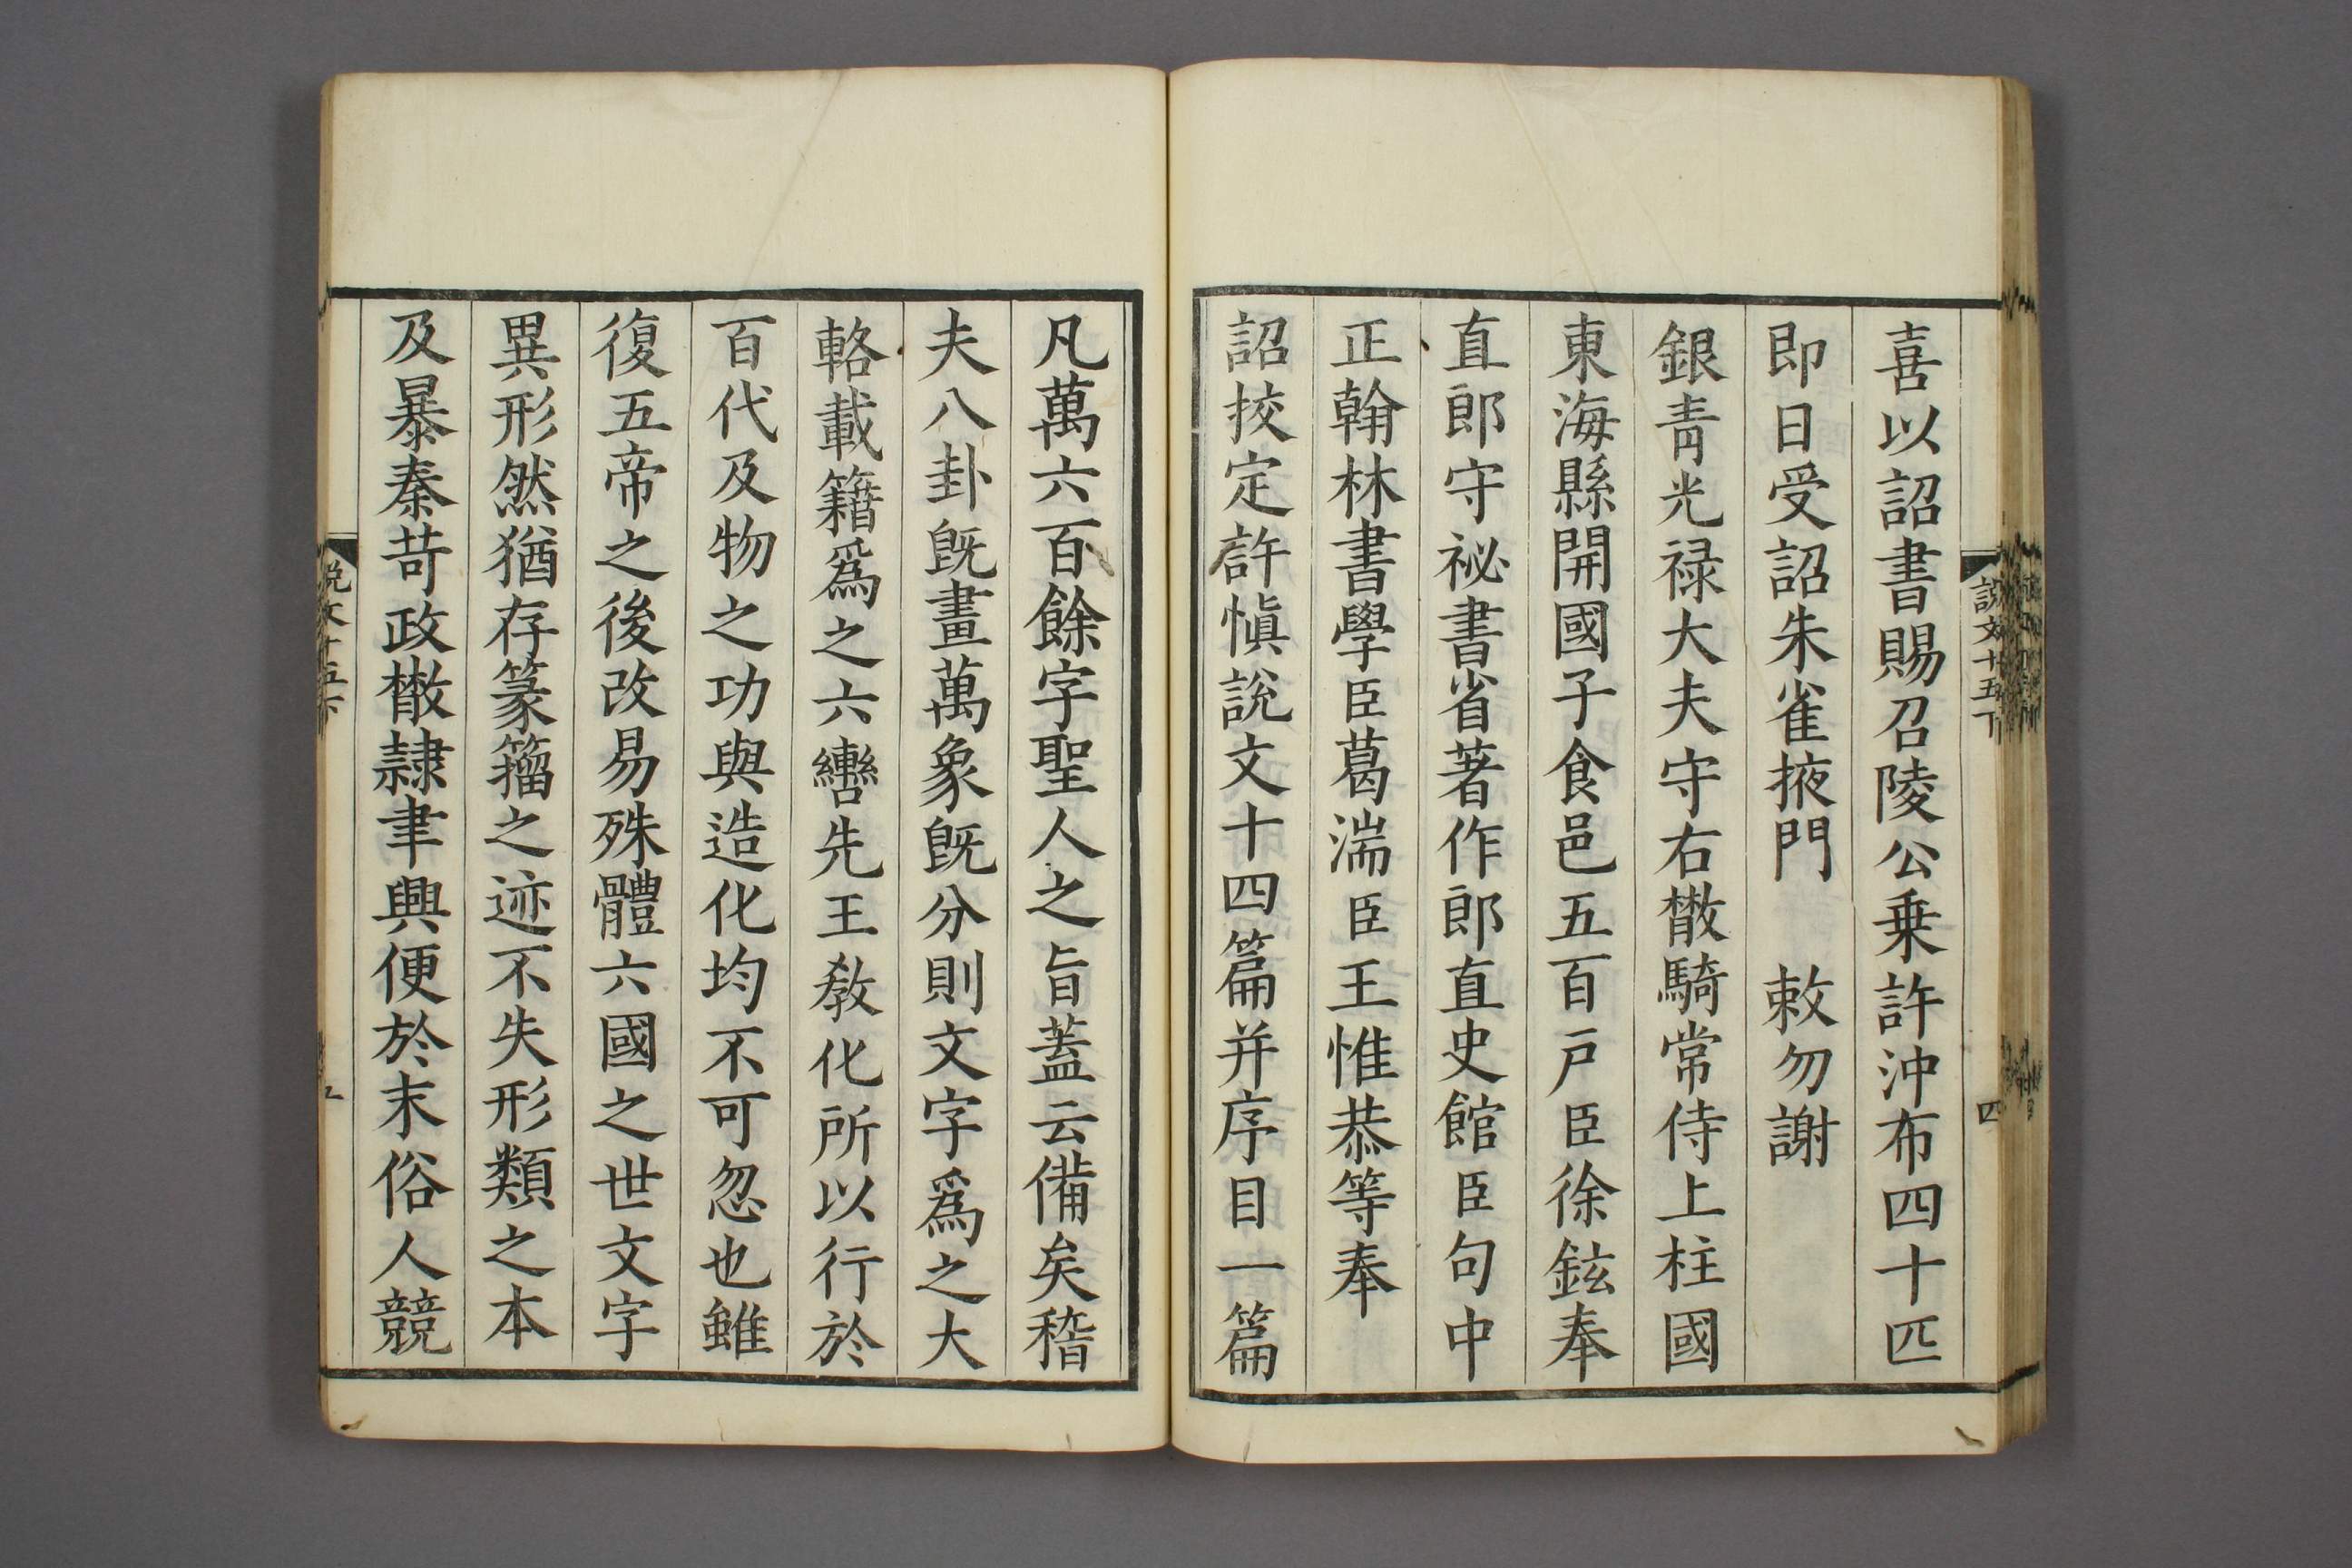 說文十五下
四
喜以詔書賜召陵公乗許沖布四十匹
即日受詔朱雀掖門　敕勿謝
銀青光禄大夫守右散騎常侍上柱國
東海縣開國子食邑五百戸臣徐鉉奉
直郎守祕書省著作郎直史館臣句中
正翰林書學臣葛湍臣王惟恭等奉
詔挍定許愼說文十四篇并序目一篇
凡萬六百餘字聖人之旨蓋云備矣稽
夫八卦旣畫萬象旣分則文字爲之大
輅載籍爲之六轡先王敎化所以行於
百代及物之功與造化均不可忽也雖
復五帝之後改易殊體六國之世文字
異形然猶存篆籀之迹不失形類之本
及暴秦苛政散隷聿興便於末俗人競
說文十五下